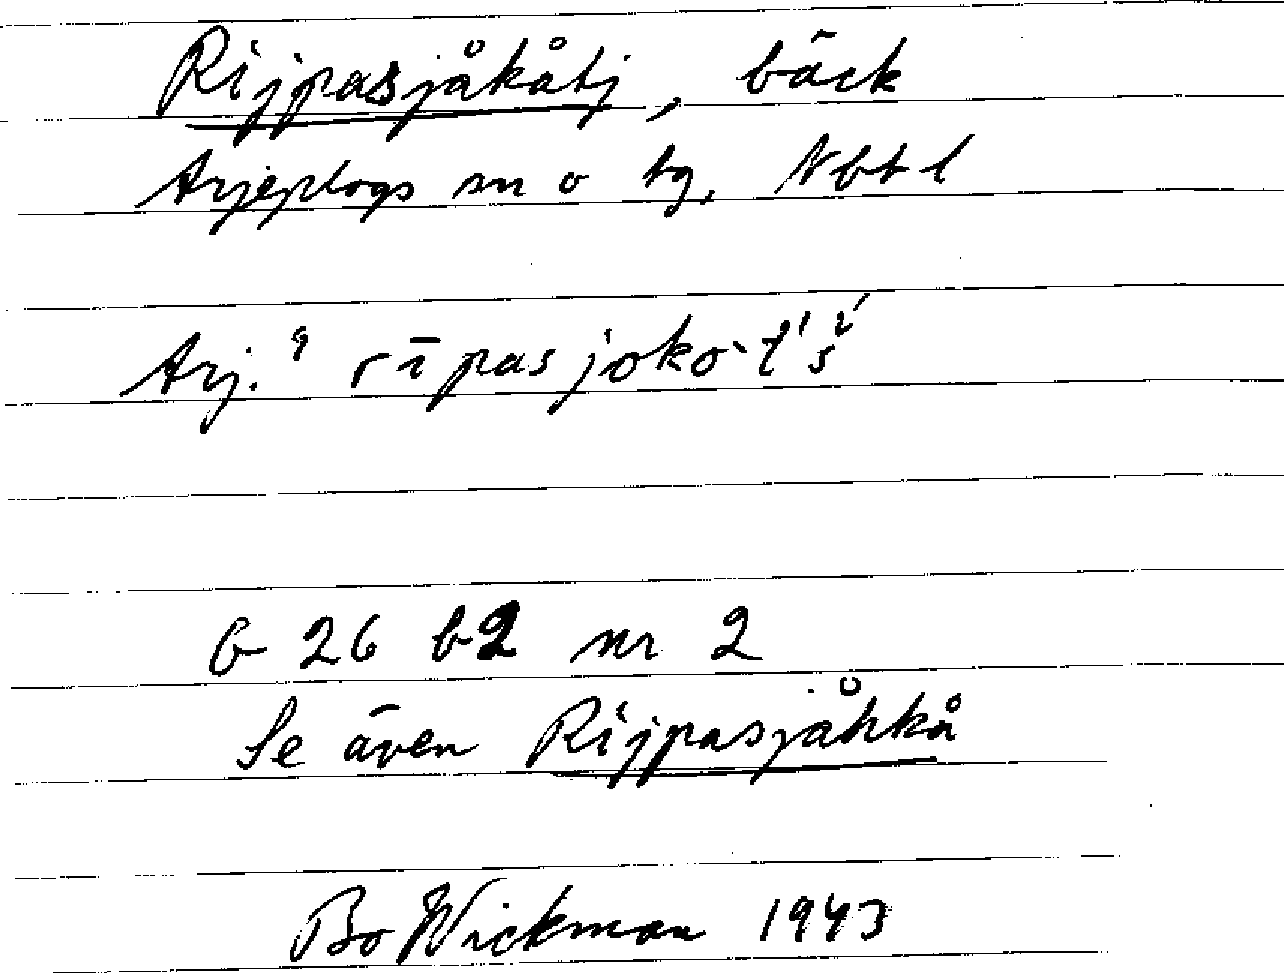 Rijpasjåkåtj, bäck
Arjeplogs sn o tg, Nbt l
Arj.
G 26 b2 nr 2
Se även Rijpasjåhkå
Bo Wickman 1943